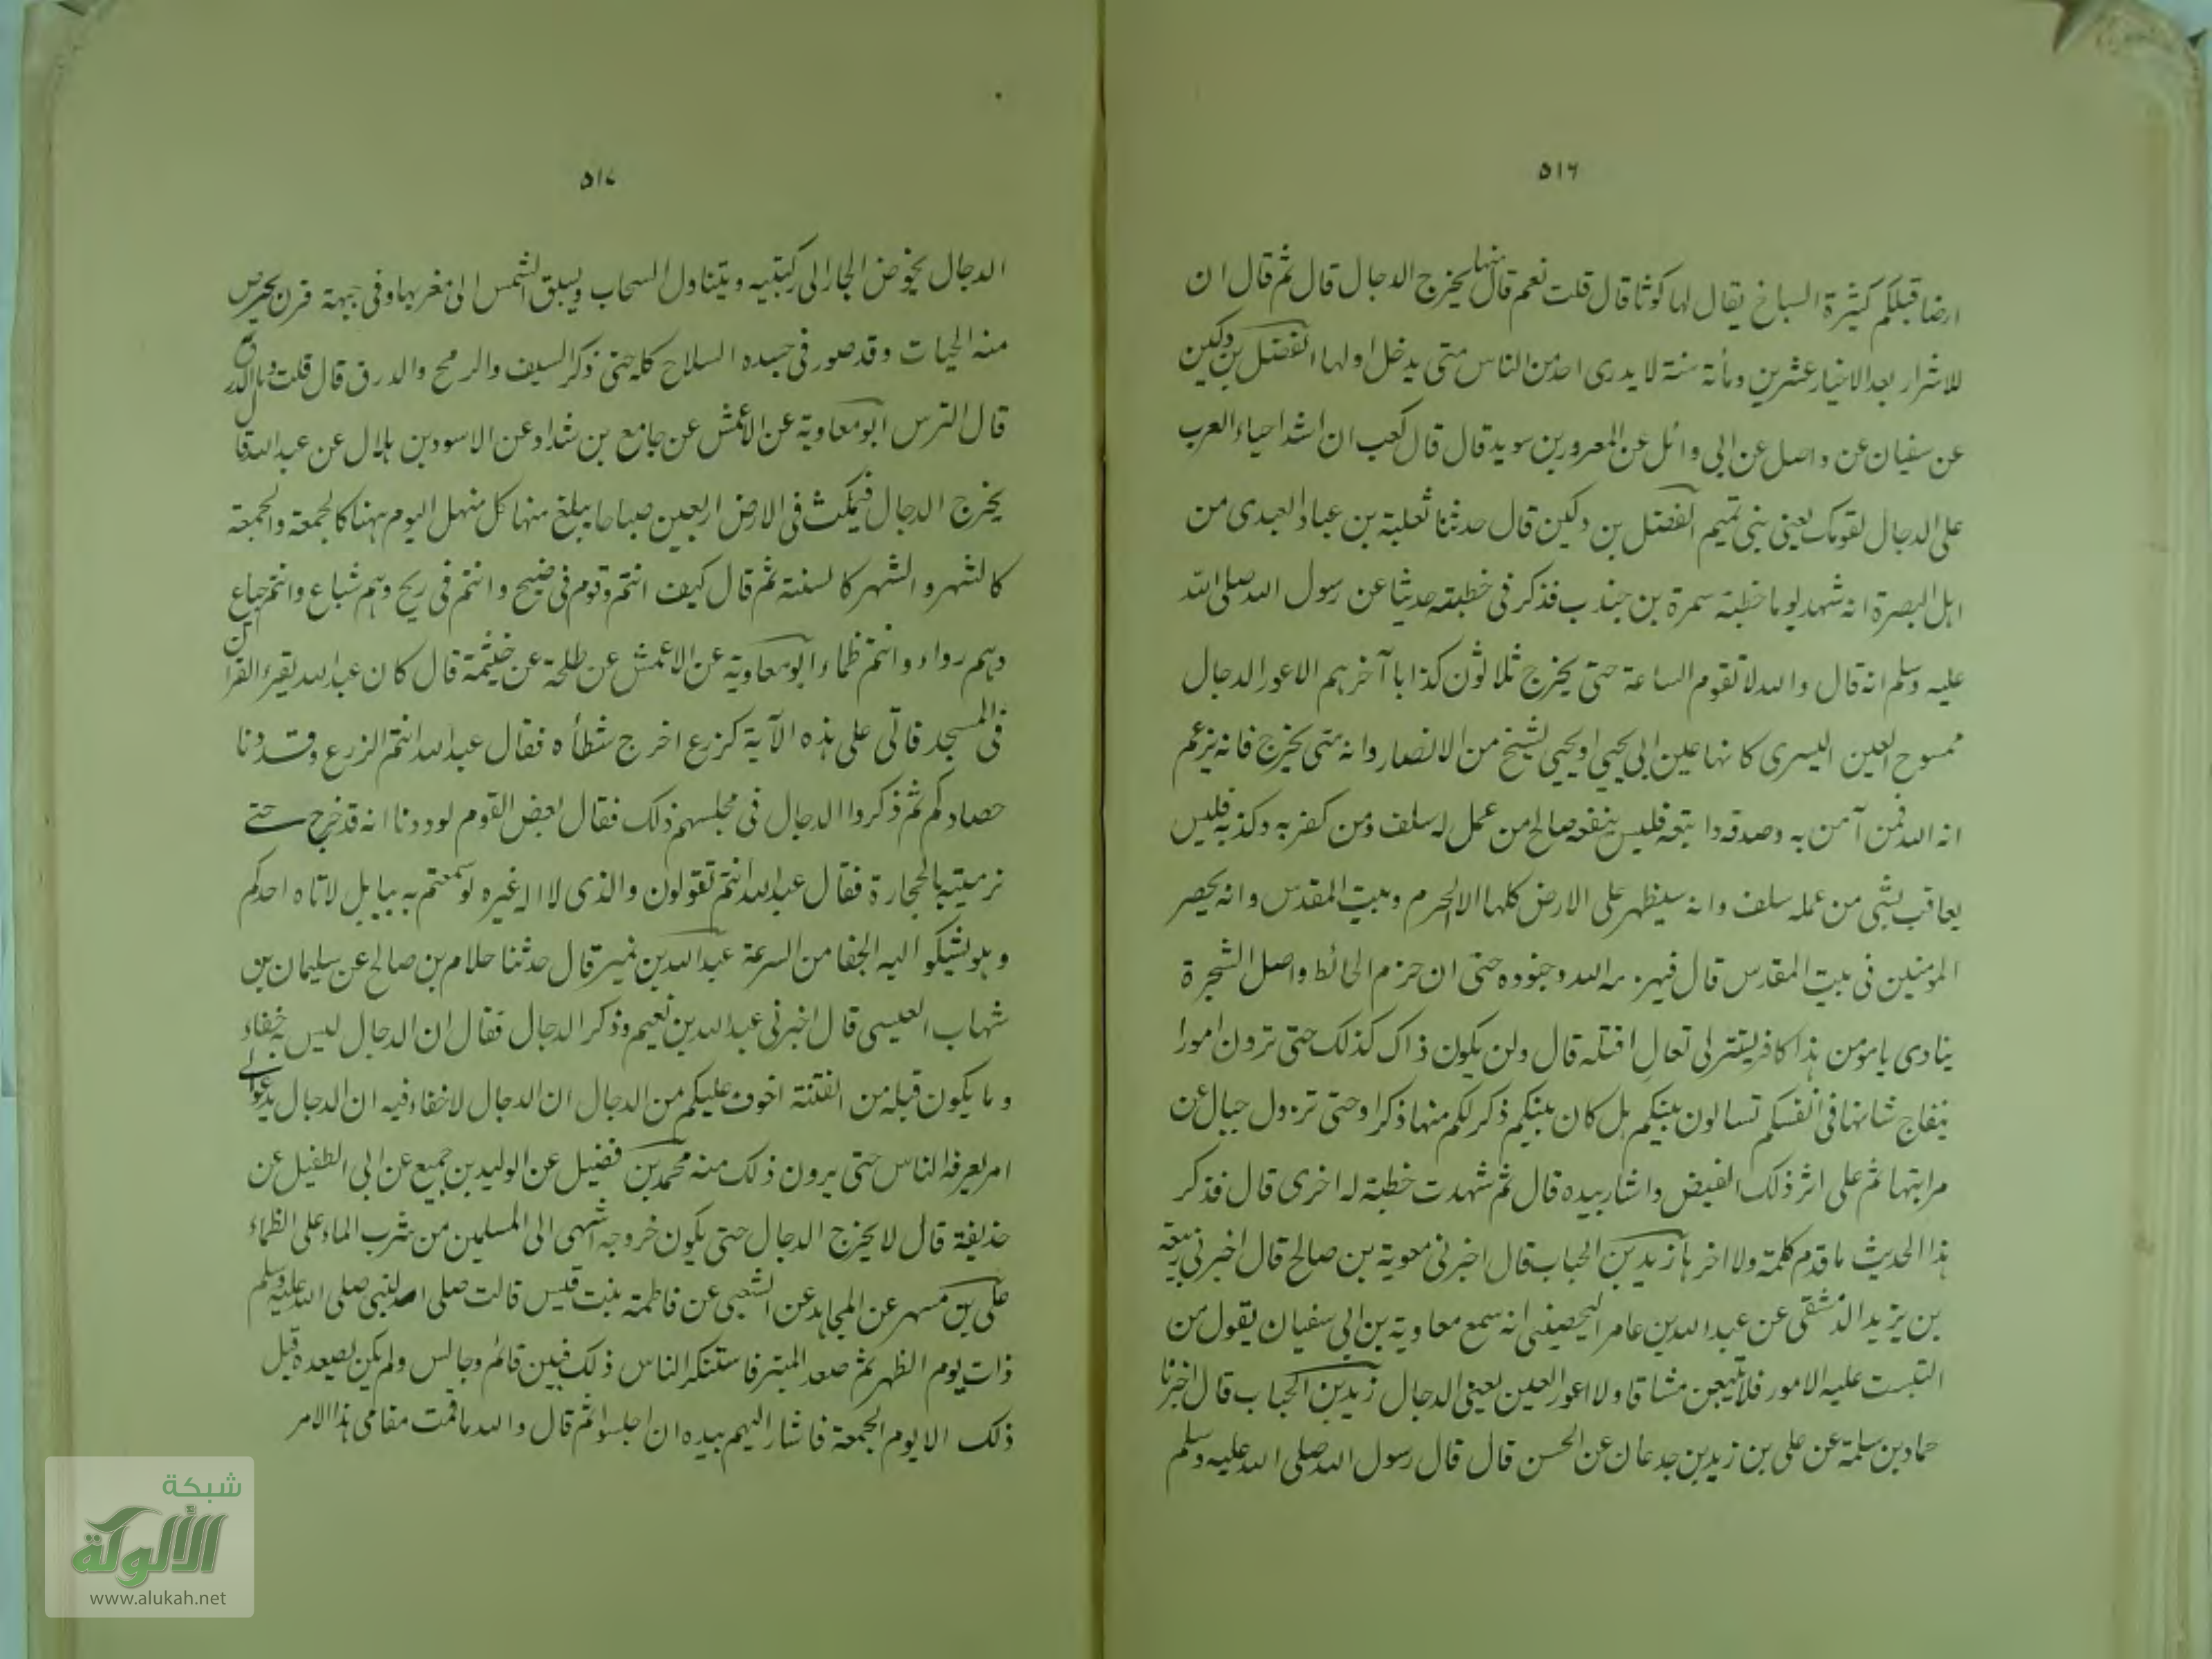 ٥١٦
ارضا قبلكم كثيرة السباخ يقال لها كوثا قال قلت نعم قال منها يخرج الدجال قال ثم قال ان
للاشرار بعد الاخيار عشرين ومأئة سنة لا يدرى احد من الناس متى يدخل اولها الفضل بن دكين
عن سفيان عن واصل عن ابى وائل عن المعرور بن سويد قال قال كعب ان اشد احياء العرب
على الدجال لقومك يعنى بنى تميم الفضل بن دكين قال حدثنا ثعلبة بن عباد العبدى من
اهل البصرة انه شهد يوما خطبة سمرة بن جندب فذكر فى خطبته حديثا عن رسول الله صلى الله
عليه وسلم انه قال والله لا تقوم الساعة حتى يخرج ثلاثون كذابا آخرهم الاعور الدجال
ممسوح العين اليسرى كانها عين ابى يحيى او يحيى لشيخ من الانصار وانه متى يخرج فانه يزعم
انه الله فمن آمن به وصدقه واتبعه فليس ينفعه صالح من عمل له سلف ومن كفر به وكذبه فليس
يعاقب بشى من عمله سلف وانه سيظهر على الارض كلها الا الحرم وبيت المقدس وانه يحصر
المومنين فى بيت المقدس قال فيهزمه الله وجنوده حتى ان حزم الحائط واصل الشجرة
ينادى يا مومن هذا كافر يستتر لى تعال اقتله قال ولن يكون ذاك كذلك حتى ترون امورا
يتفاج شانها فى انفسكم تسالون بينكم هل كان بينكم ذكر لكم منها ذكرا وحتى تزول جبال عن
مراتبها ثم على اثر ذلك القبض واشار بيده قال ثم شهدت خطبة له اخرى قال فذكر
هذا الحديث ما قدم كلمة ولا اخرها زيد بن الحباب قال اخبرنى معوية بن صالح قال اخبرنى ربيعة
بن يزيد الدمشقى عن عبد الله بن عامر اليحصبى انه سمع معاوية بن ابى سفيان يقول من
التبست عليه الامور فلا يتبعن مشاقا ولا اعور العين يعنى الدجال زيد بن الحباب قال اخبرنا
حماد بن سلمة عن على بن زيد بن جدعان عن الحسن قال قال رسول الله صلى الله عليه وسلم
٥١٧
الدجال يخوض البحار الى ركبتيه ويتناول السحاب ويسبق الشمس الى مغربها وفى جبهة قرن يخرص
منه الحيات وقد صور فى جسده السلاح كله حتى ذكر السيف والرمح والدرق قال قلت وما الدرق
قال الترس ابو معاوية عن الاعمش عن جامع بن شداد عن الاسود بن هلال عن عبد الله قال
يخرج الدجال فيمكث فى الارض اربعين صباحا يبلغ منها كل منهل اليوم منها كالجمعة والجمعة
كالشهر والشهر كالسنة ثم قال كيف انتم وقوم فى ضيح وانتم فى ريح وهم شباع وانتم جياع
وهم رواء وانتم ظماء ابو معاوية عن الاعمش عن طلحة عن خيثمة قال كان عبد الله يقرء القران
فى المسجد فاتى على هذه الآية كزرع اخرج شطأه فقال عبد الله انتم الزرع وقد دنا
حصادكم ثم ذكروا الدجال فى مجلسهم ذلك فقال بعض القوم لوددنا انه قد خرج حتے
نرميته بالحجارة فقال عبد الله انتم تقولون والذى لا اله غيره لو سمعتم به ببابل لاتاه احدكم
وهو يشكو اليه الجفا من السرعة عبد الله بن نمير قال حدثنا حلام بن صالح عن سليمان بن
شهاب العبسى قال اخبرنى عبد الله بن نعيم وذكر الدجال فقال ان الدجال ليس به خفاء
وما يكون قبله من الفتنة اخوف عليكم من الدجال ان الدجال لا خفاء فيه ان الدجال يدعوالے
امر يعرفه الناس حتى يرون ذلك منه محمد بن فضيل عن الوليد بن جميع عن ابى الطفيل عن
حذيفة قال لا يخرج الدجال حتى يكون خروجه اشهى الى المسلمين من شرب الماء على الظماء
على بن مسهر عن المجاهد عن الشعبى عن فاطمة بنت قيس قالت صلى النبى صلى الله عليه وسلم
ذات يوم الظهر ثم صعد المنبر فاستنكر الناس ذلك فبين قائم وجالس ولم يكن يصعده قبل
ذلك الا يوم الجمعة فاشار اليهم بيده ان اجلسوا ثم قال والله ما قمت مقامى هذا الامر
شبكة
الألوكة
www.alukah.net